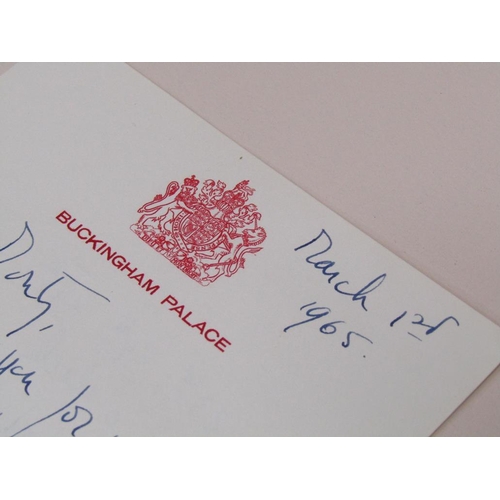 BUCKINGHAM PALACE
March 1st
1965.
Monty,
for